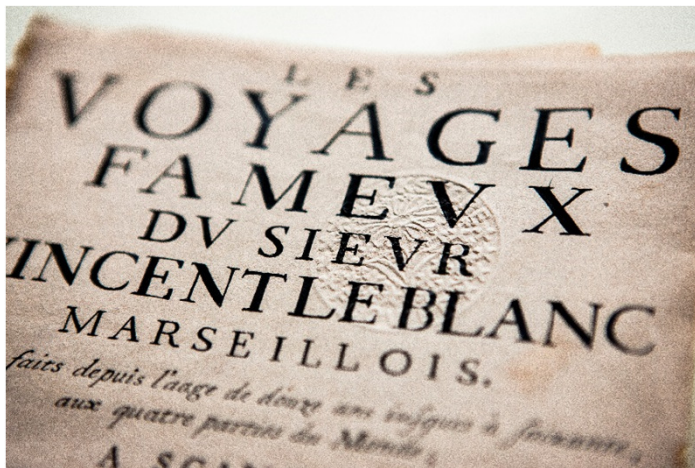 LES
VOYAGES
FAMEVX
DV SIEVR
VINCENT LE BLANC
MARSEILLOIS.
faits depuis l'aage de douze ans iusques à soixante,
aux quatre parties du Monde;
A SCAV